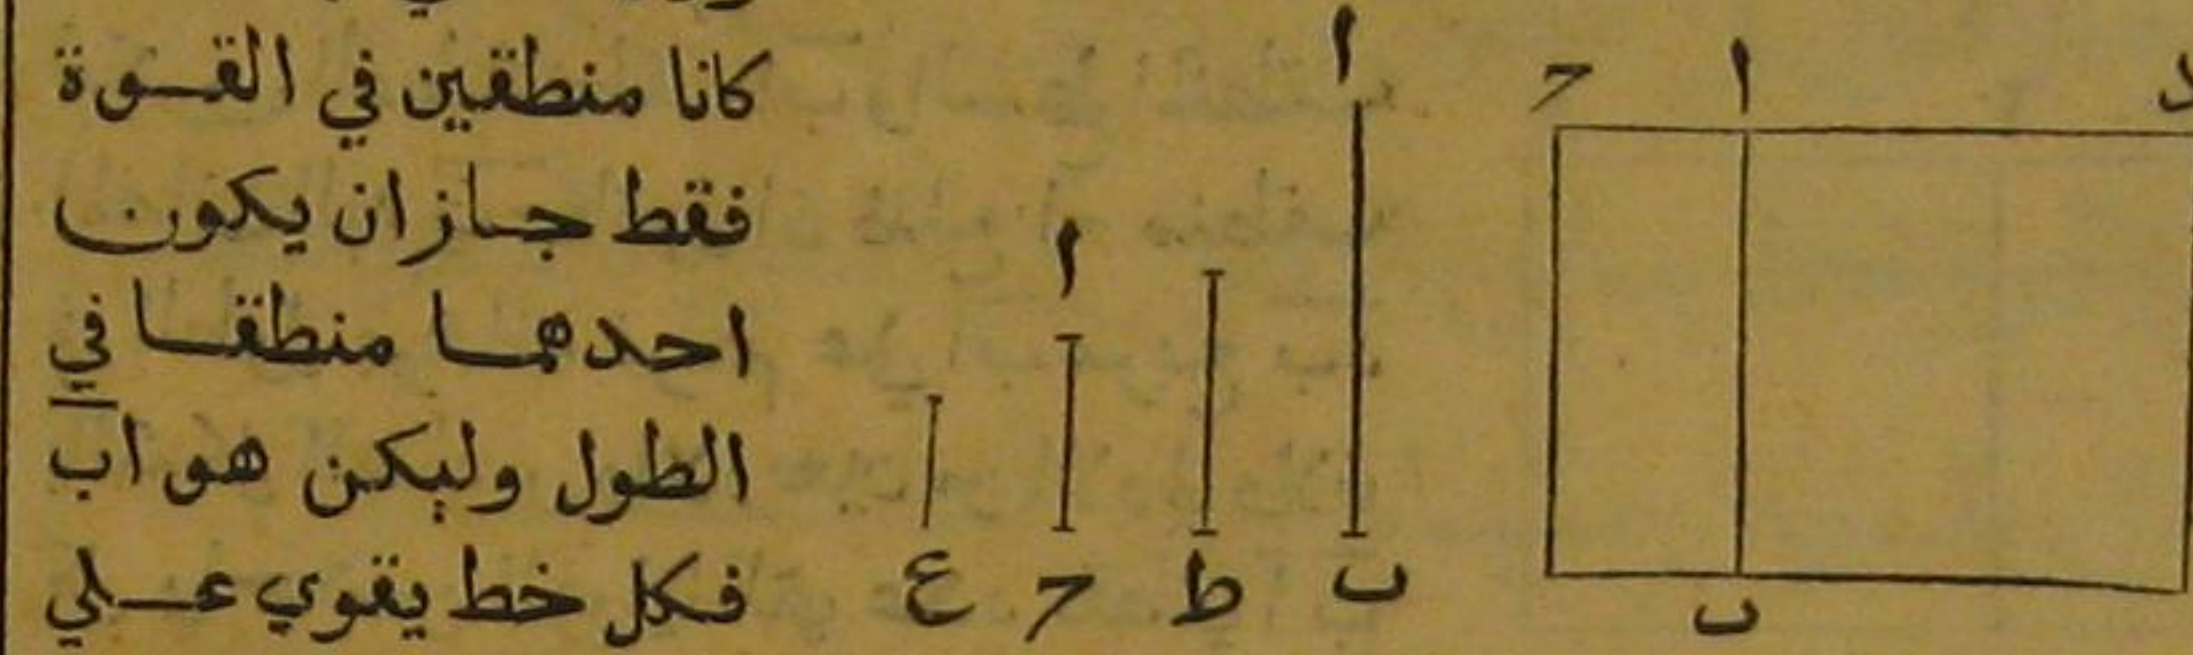 كانا منطقين في القوة
فقط جاز ان يكون
احدهما منطقا في
الطول وليكن هو اب
فكل خط يقوي علي
د ا ح
ا
ا
ب
ب ط ح ع